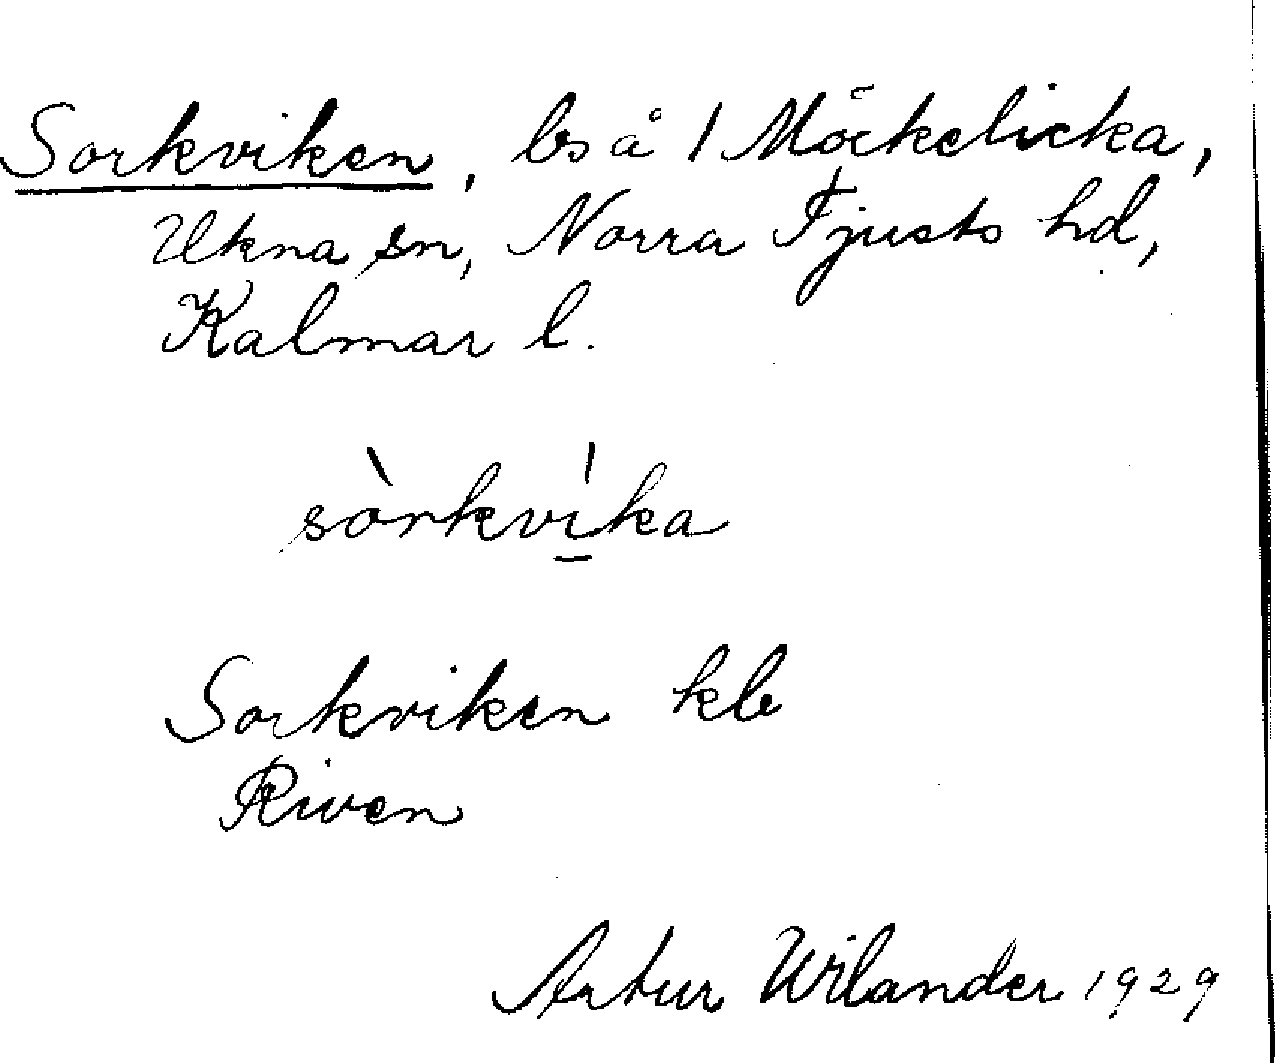 Sorkviken, ls å 1 Möckelicka,
Ukna sn, Norra Tjusts hd,
Kalmar l.
sòrkví̱ka
Sorkviken kb
Riven
Artur Wilander 1929